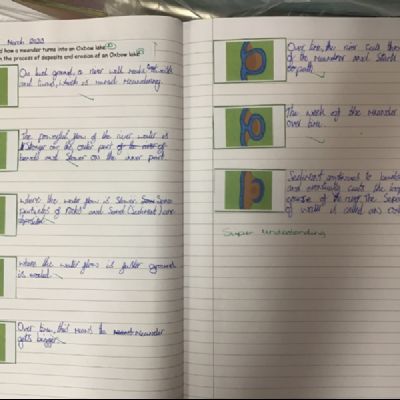 March 2022
how a meander turns into an Oxbow lake
the process of deposits and erosion of an Oxbow lake
On flat ground, a river will make twists
and turns, which is named Meandering.
The powerful flow of the river water is
stronger on the outer part of the
bend and slower on the inner part
where the water flow is slower. Some
particles of rocks and Sand (Sediment) are
deposited
where the water flow is faster ground
is eroded
Over time, that means the Meander
gets bigger
Over time, the river cuts
of the meander and starts
The neck of the meander
over time.
Sediment continues to
and eventually cuts the
course of the river. The
of water is called an
Super understanding